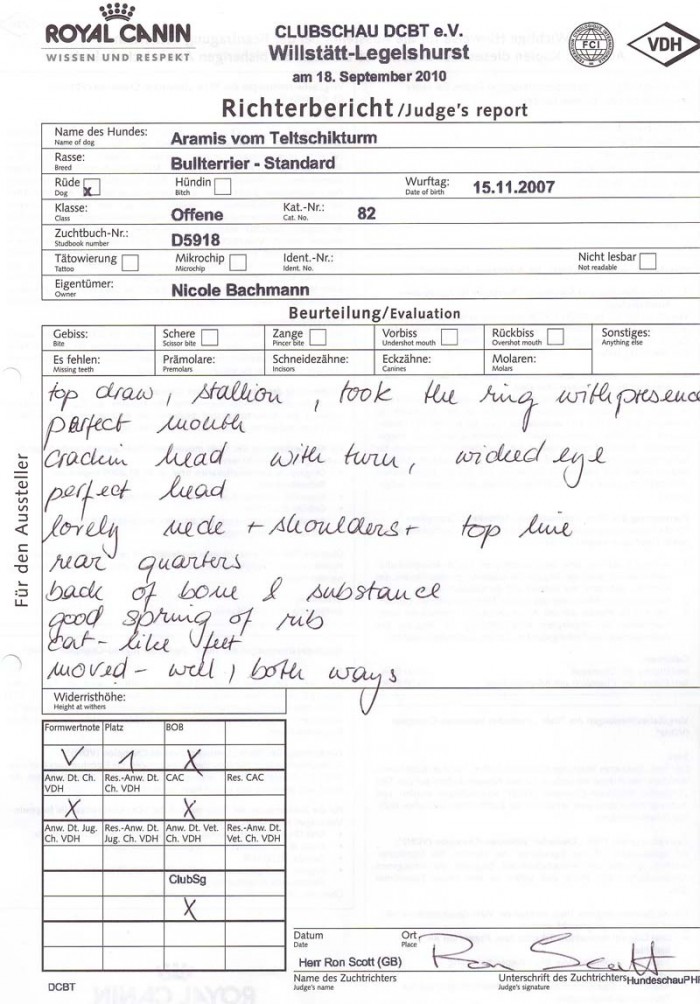 ROYAL CANIN
WISSEN UND RESPEKT
CLUBSCHAU DCBT e.V.
Willstätt-Legelshurst
am 18. September 2010
FCI
VDH
Richterbericht/Judge's report
Name des Hundes: Aramis vom Teltschikturm
Name of dog
Rasse: Bullterrier - Standard
Breed
Rüde X Hündin Wurftag: 15.11.2007
Dog Bitch Date of birth
Klasse: Offene Kat.-Nr.: 82
Class Cat. No.
Zuchtbuch-Nr.: D5918
Studbook number
Tätowierung Mikrochip Ident.-Nr.: Nicht lesbar
Tattoo Microchip Ident. No. Not readable
Eigentümer: Nicole Bachmann
Owner
Beurteilung/Evaluation
Gebiss: Schere Zange Vorbiss Rückbiss Sonstiges:
Bite Scissor bite Pincer bite Undershot mouth Overshot mouth Anything else
Es fehlen: Prämolare: Schneidezähne: Eckzähne: Molaren:
Missing teeth Premolars Incisors Canines Molars
Für den Aussteller
top draw, stallion, took the ring with presence
perfect mouth
crackin head with turn, wicked eye
perfect head
lovely neck + shoulders + top line
rear quarters
back of bone & substance
good spring of rib
cat-like feet
moved - well, both ways
Widerristhöhe:
Height at withers
Formwertnote Platz BOB
V 1 X
Anw. Dt. Ch. VDH Res.-Anw. Dt. Ch. VDH CAC Res. CAC
X X
Anw. Dt. Jug. Ch. VDH Res.-Anw. Dt. Jug. Ch. VDH Anw. Dt. Vet. Ch. VDH Res.-Anw. Dt. Vet. Ch. VDH
ClubSg
X
Datum Ort
Date Place
Ron Scott
Herr Ron Scott (GB)
Name des Zuchtrichters Unterschrift des Zuchtrichters HundeschauPHI
Judge's name Judge's signature
DCBT